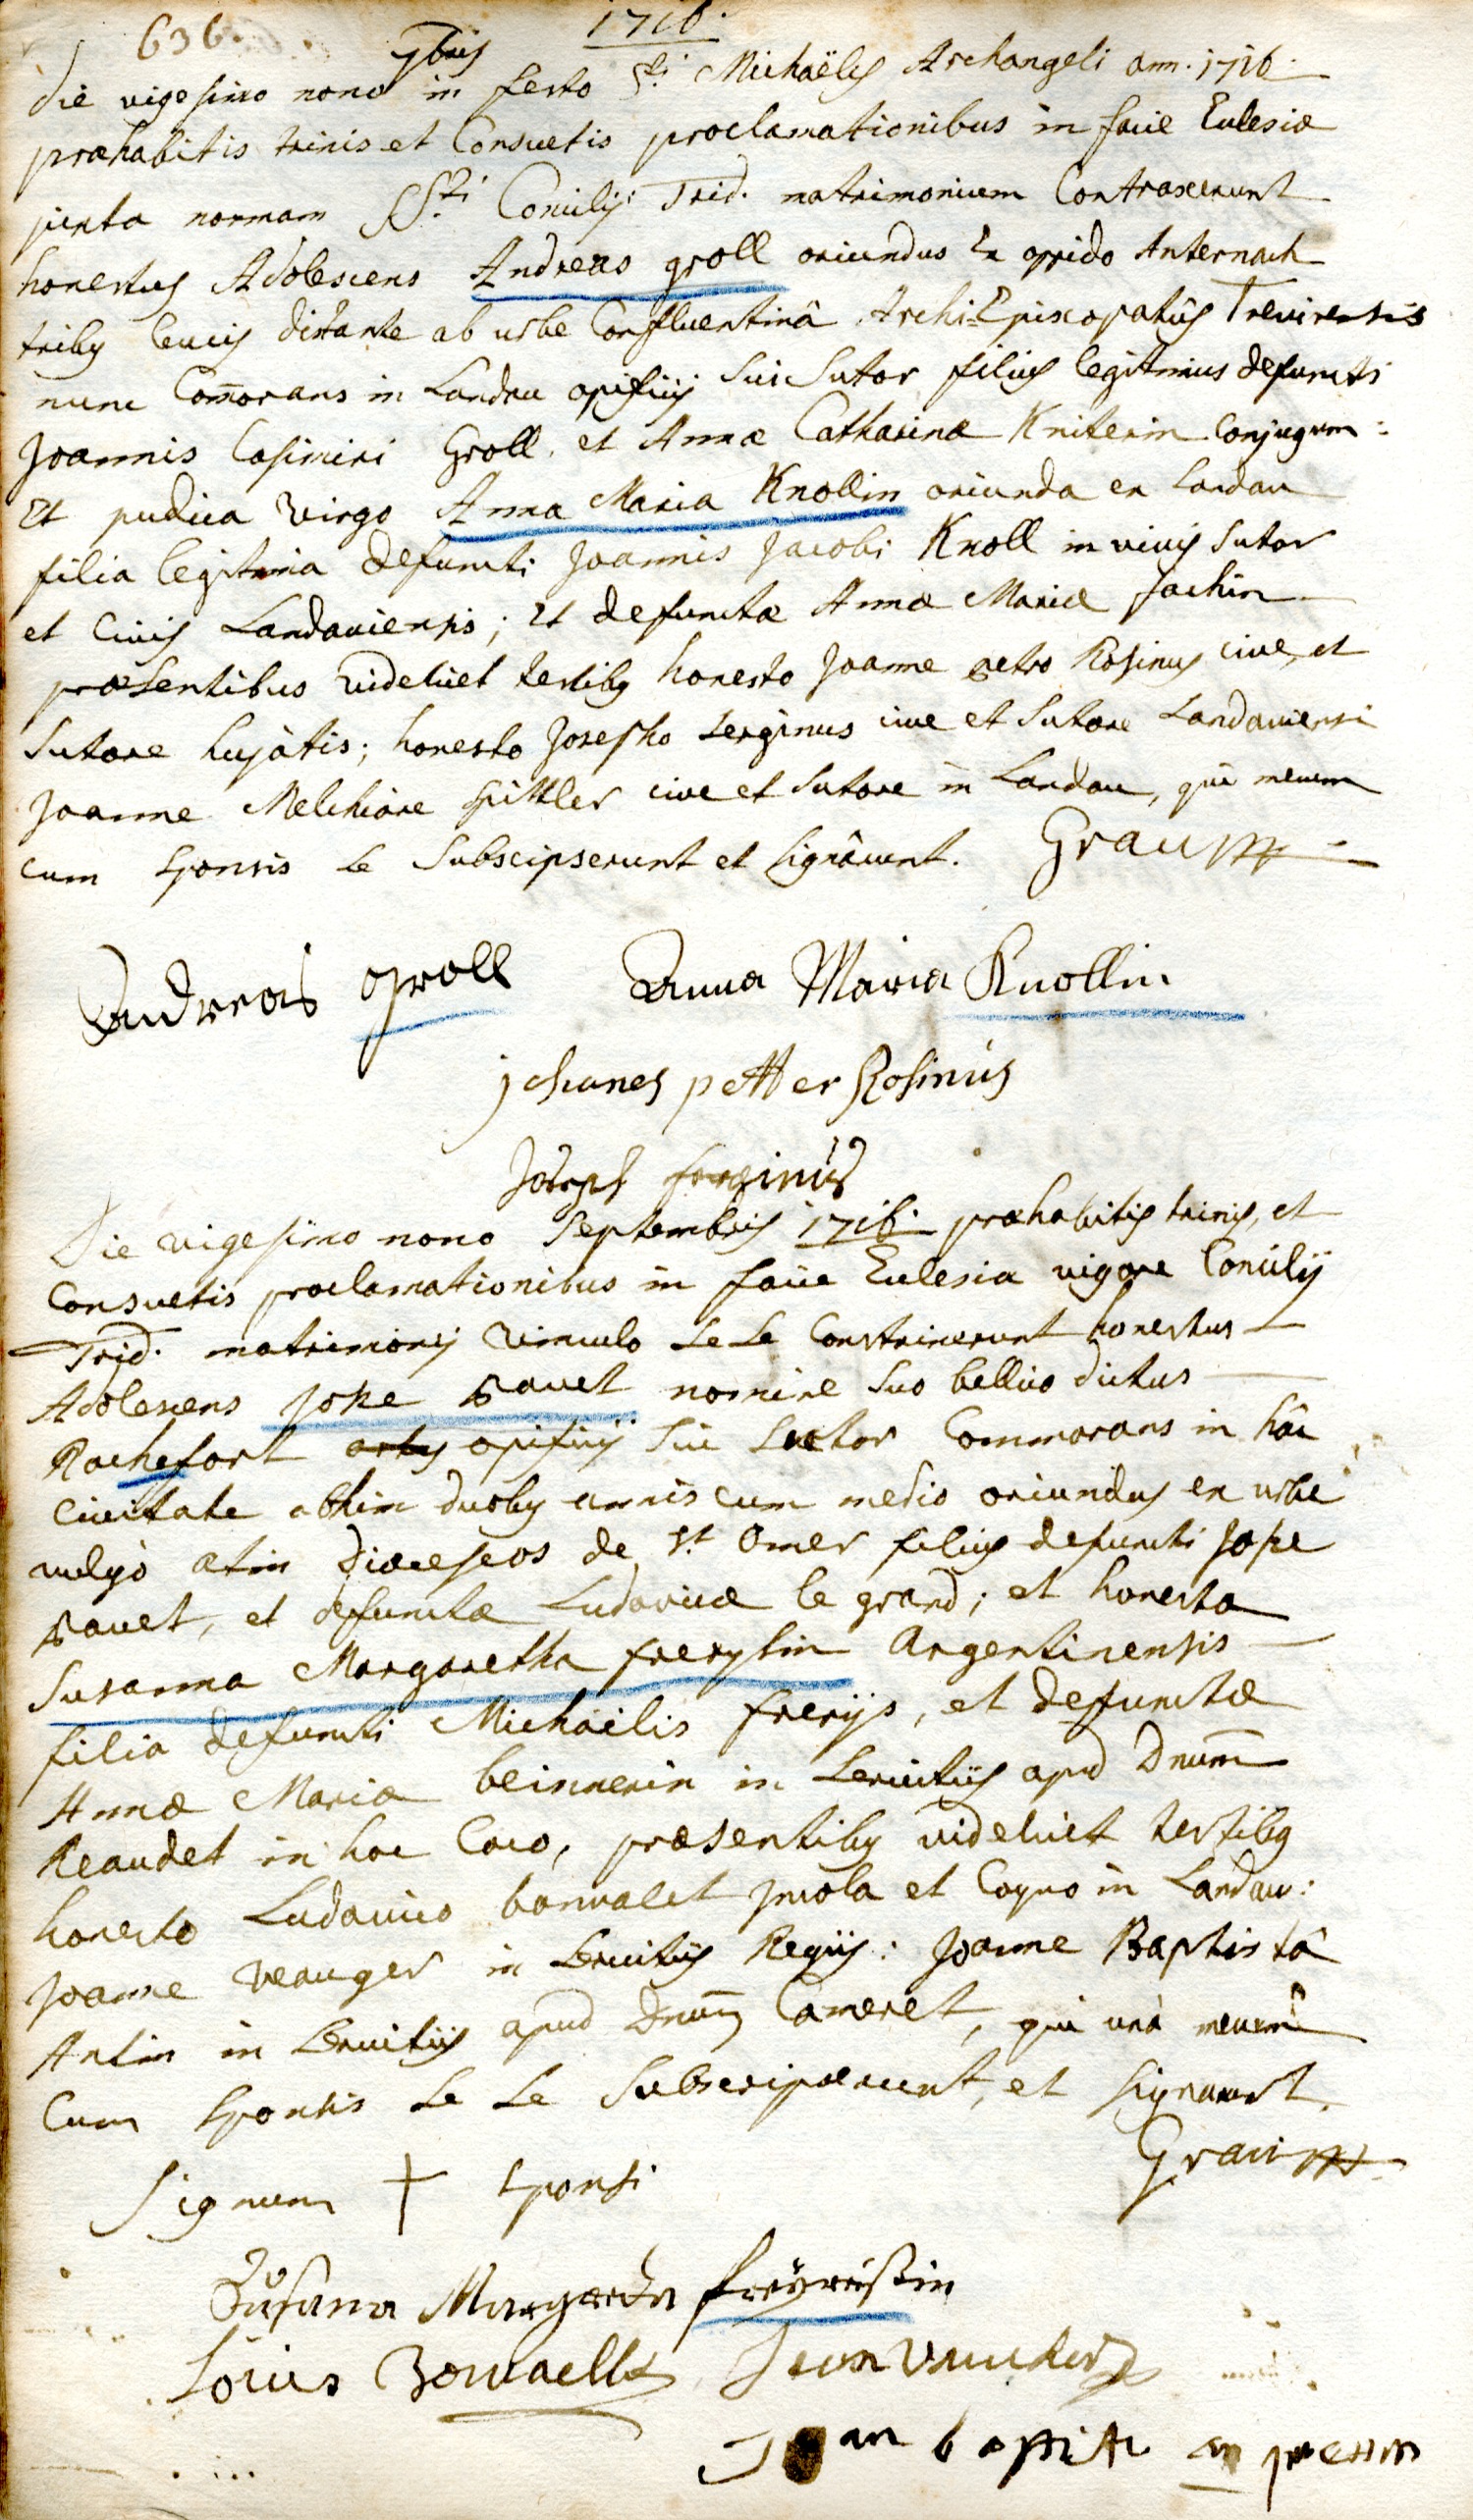 636.
1716.
7bris
Die vigesimo nono in festo Sti Michaëlis Archangeli ann. 1716.
præhabitis trinis et Consuetis proclamationibus in facie Ecclesiæ
juxta normam SSti Concilij Trid. matrimonium Contraxerunt
honestus Adolescens Andreas groll oriundus Ex oppido Anternach
tribus leucis distante ab urbe Confluentinâ Archi-Episcopatûs Trevirensis
nunc Com̄orans in Landau opificij sui Sutor filius legitimus defuncti
Joannis Casimiri Groll, et Annæ Catharinæ Kniterin Conjugum:
Et pudica virgo Anna Maria Knollin oriunda ex Landau
filia legitima defuncti Joannis Jacobi Knoll in vivis Sutor
et Civis Landaviensis; Et defunctæ Annæ Mariæ Jachin
præsentibus videlicet testibus honesto Joanne petro Rosinus cive, et
Sutore hujàtis; honesto Josepho Serginus cive et Sutore Landaviensi
Joanne Melchiore Spittler cive et Sutore in Landau, qui mecum
cum Sponsis se Subscipserunt et signârunt. Grau
Andreas groll Anna Maria Knollin
johanes petter Rosinus
Joseph serginus
Die vigesimo nono Septembris 1716. præhabitis trinis, et
Consuetis proclamationibus in facie Ecclesia vigore Concilij
Trid. matrimonij vinculo se se Constrinxerunt honestus
Adolescens Jose Bavet nomine suo bellico dictus
Rochefort artis opificij sui Sutor Commorans in hâc
Civitate abhinc duobus annis cum medio oriundus ex urbe
vulgò atin Diœceseos de St Omer filius defuncti Jose
Bavet, et defunctæ Ludovicæ le grand; et honesta
Susanna Margaretha freysin Argentinensis
filia defuncti Michaëlis freyß, et defunctæ
Annæ Mariæ beinnerin in Servitijs apud Dnum
Reaudet in hoc loco, præsentibus videlicet testibus
honesto Ludovico bonvalet jncola et Coquo in Landau:
Joanne veauger in Servitijs Regijs: Joanne Baptistâ
Antin in Servitijs apud Dnum Cameret, qui unà mecum
Cum Sponsis se se Subscripserunt, et signarunt.
Grau
Signum † Sponsi
Susana Margareda freyreisin
Louis Bonvaellet Jean
Jean baptiste